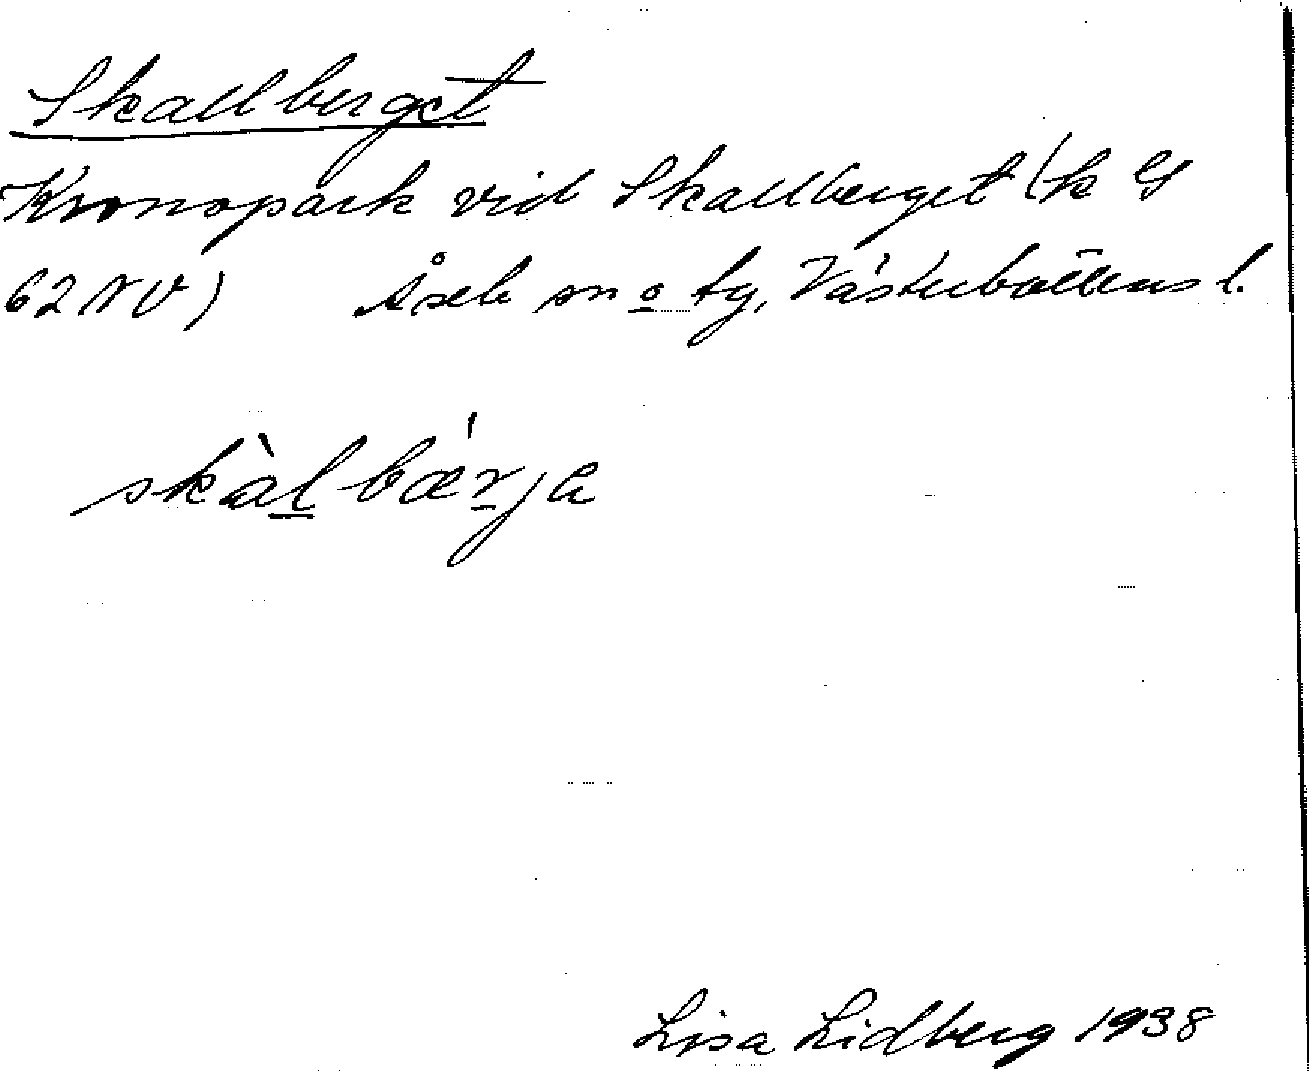 Skallberget
Kronopark vid Skallberget (k G
62 NV) Åsele sn o tg, Västerbottens l.
skàlbærja
Lisa Lidberg 1938